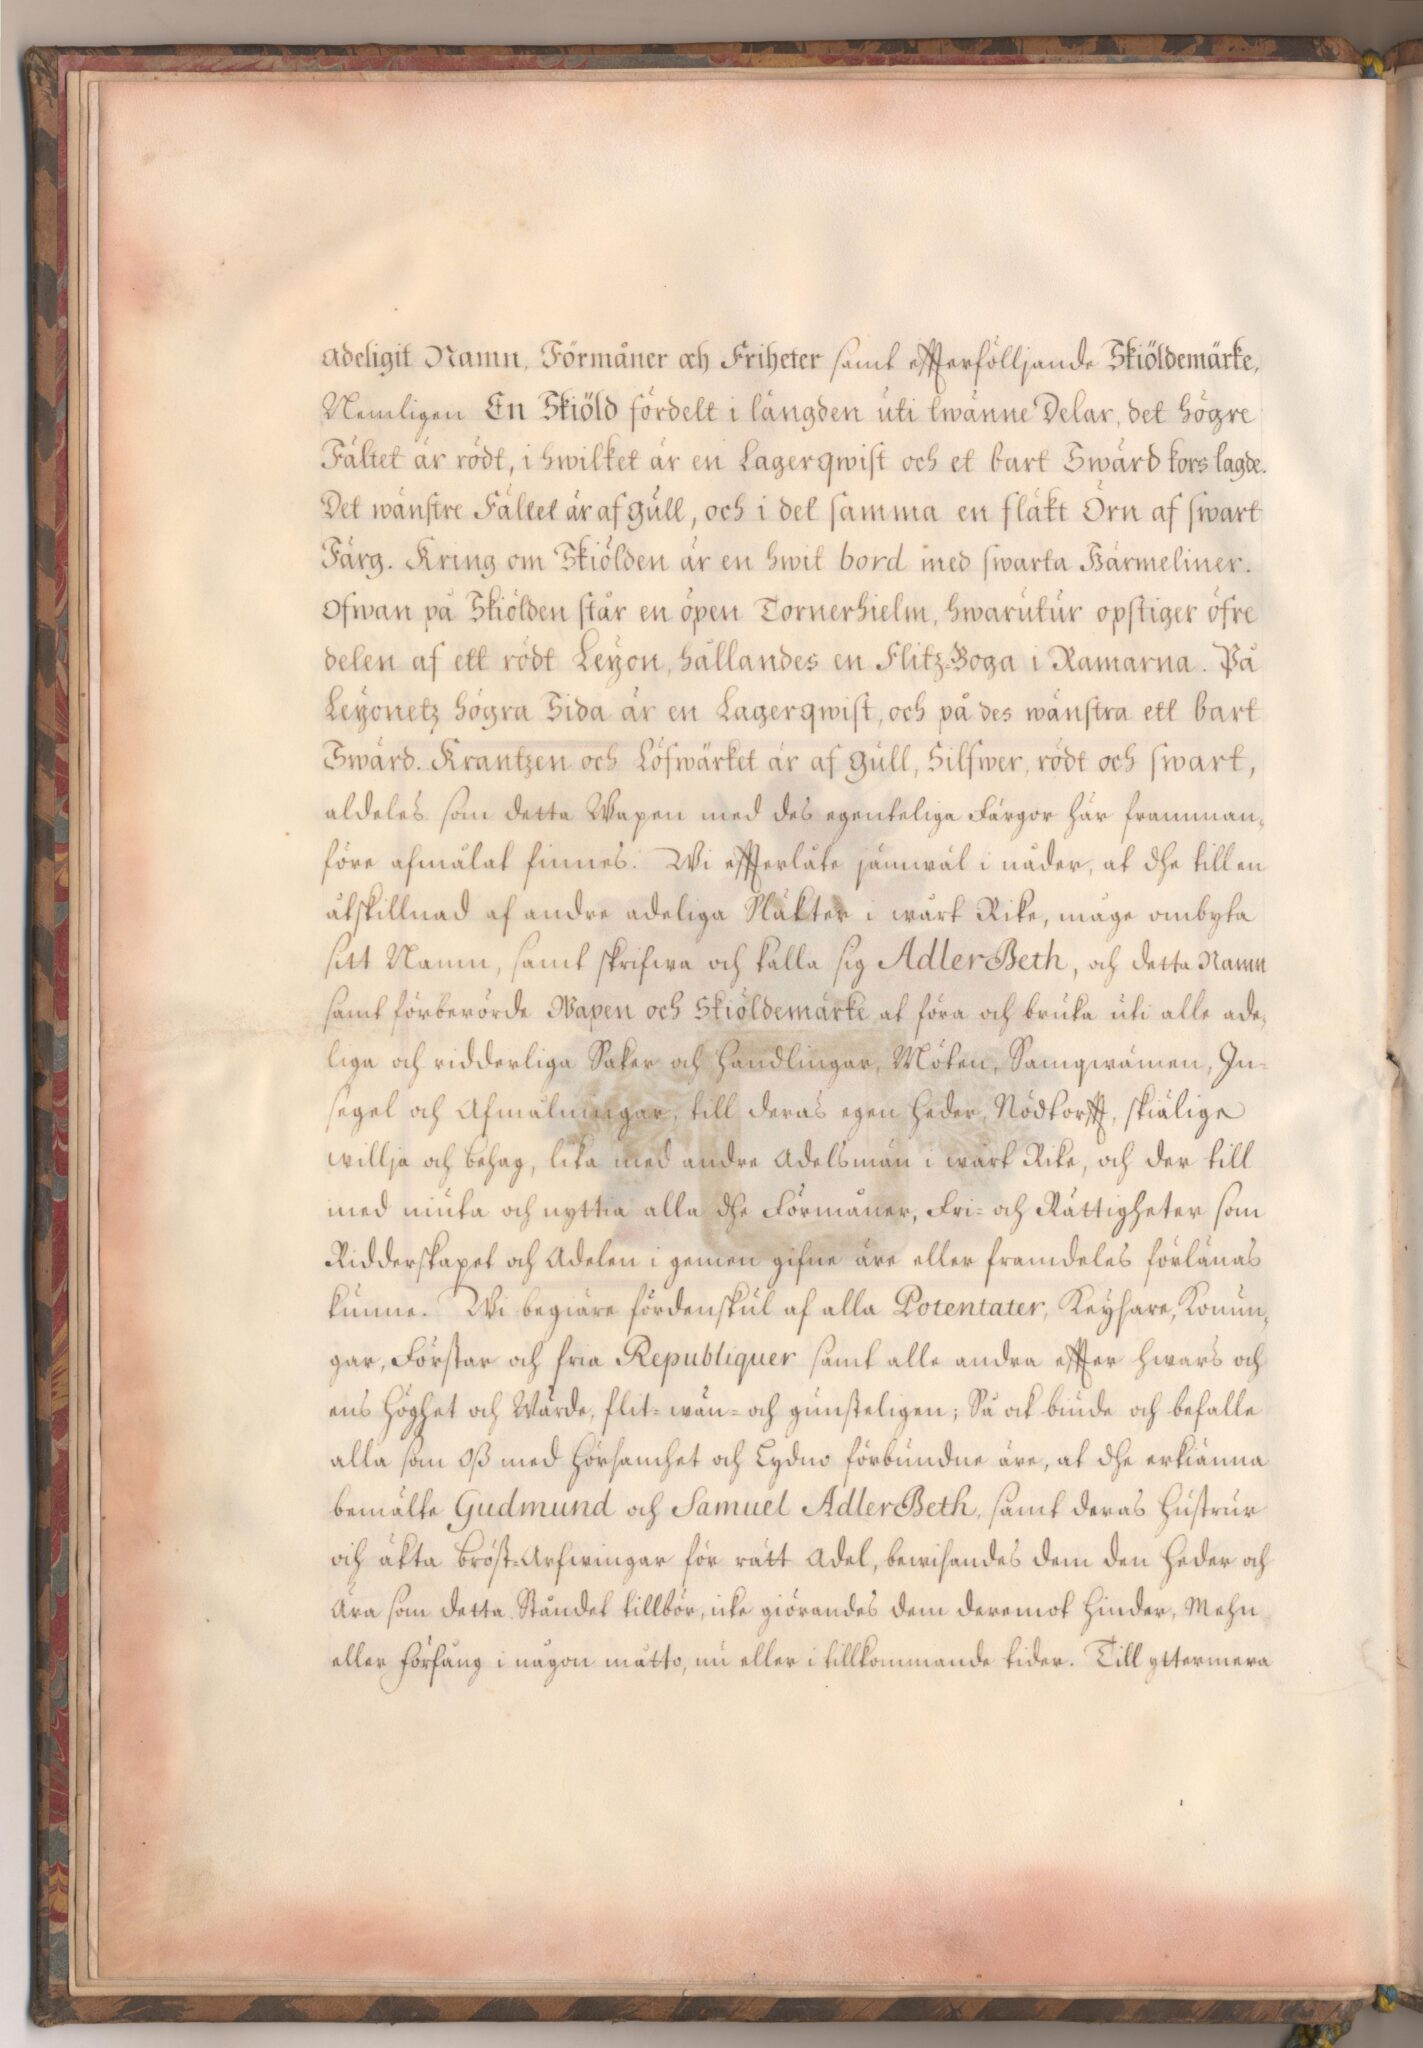 Adeligit Namn, Förmåner och Friheter samt effterfölljande Skiöldemärke,
Nemligen En Skiöld fördelt i längden uti twänne Delar, det högre
Fältet är rödt, i hwilket är en Lagerqwist och et bart Swärd kors lagde.
Det wänstre Fältet är af gull, och i det samma en fläkt Örn af swart
Färg. Kring om Skiölden är en hwit bord med swarta Härmeliner.
Ofwan på Skiölden står en öpen Tornerhielm, hwarutur opstiger öfre
delen af ett rödt Leyon, hållandes en Flitz-Boga i Ramarna. På
Leyonetz högra Sida är en Lagerqwist, och på des wänstra ett bart
Swärd. Krantzen och Löfwärket är af gull, Silfwer, rödt och swart,
aldeles som detta Wapen med des egenteliga Färgor här framman-
före afmålat finnes. Wi effterlåte jämwäl i nåder, at dhe till en
åtskillnad af andre adeliga Släkter i wårt Rike, måge ombyta
sitt Namn, samt skrifwa och kalla sig AdlerBeth, och detta Namn
samt förberörde Wapen och Skiöldemärke at föra och bruka uti alle ade-
liga och ridderliga Saker och Handlingar, Möten, Samqwämen, In-
segel och Afmålningar, till deras egen Heder, Nödtorfft, skiälige
willja och behag, lika med andre Adelsmän i wårt Rike, och der till
med niuta och nyttia alla dhe Förmåner, Fri- och Rättigheter som
Ridderskapet och Adelen i gemen gifne äre eller framdeles förlänas
kunne. Wi begiäre fördenskul af alla Potentater, Keysare, Konun-
gar, Förstar och fria Republiquer samt alle andra effter hwars och
ens Höghet och Wärde, flit- wän- och gunsteligen; Så ock biude och befalle
alla som Oß med Hörsamhet och Lydno förbundne äre, at dhe erkiänna
bemälte Gudmund och Samuel AdlerBeth, samt deras Hustrur
och äkta Bröst-Arfwingar för rätt Adel, bewisandes dem den Heder och
Ära som detta Ståndet tillbör, icke giörandes dem deremot Hinder, Mehn
eller Förfång i någon måtto, nu eller i tillkommande tider. Till yttermera